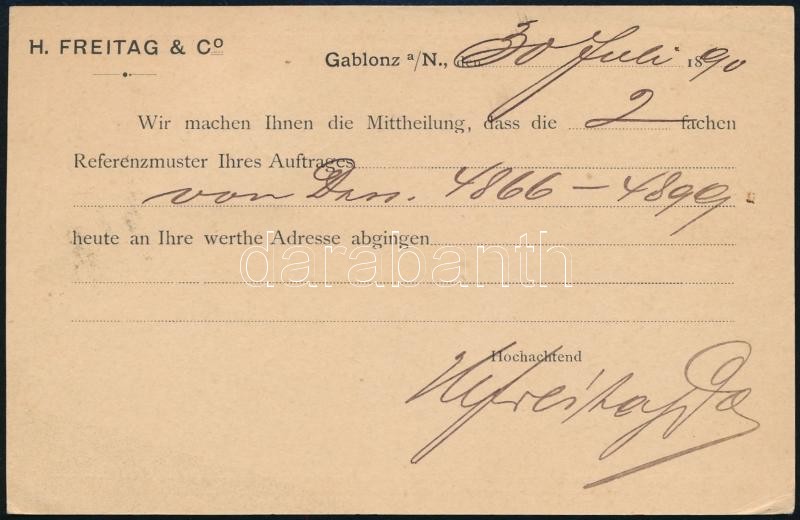 H. FREITAG & Co
Gablonz a/N., den 30 Juli 1890
Wir machen Ihnen die Mittheilung, dass die 2 fachen
Referenzmuster Ihres Auftrages
von Dess. 4866 – 4899.
heute an Ihre werthe Adresse abgingen
darabanth
Hochachtend
HFreitag & Co